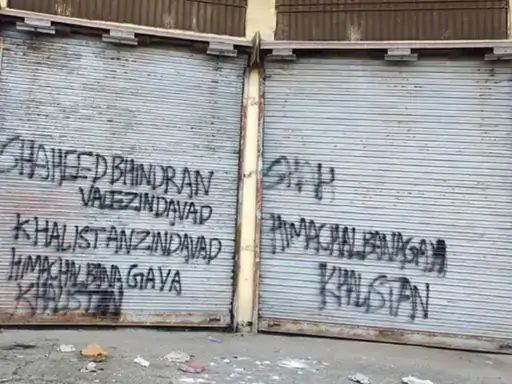 SHAHEED BHINDRAN
VALE ZINDAVAD
KHALISTAN ZINDAVAD
HIMACHAL BANA GAVA
KHALISTAN
HIMACHAL BANAGAA
KHALISTAN